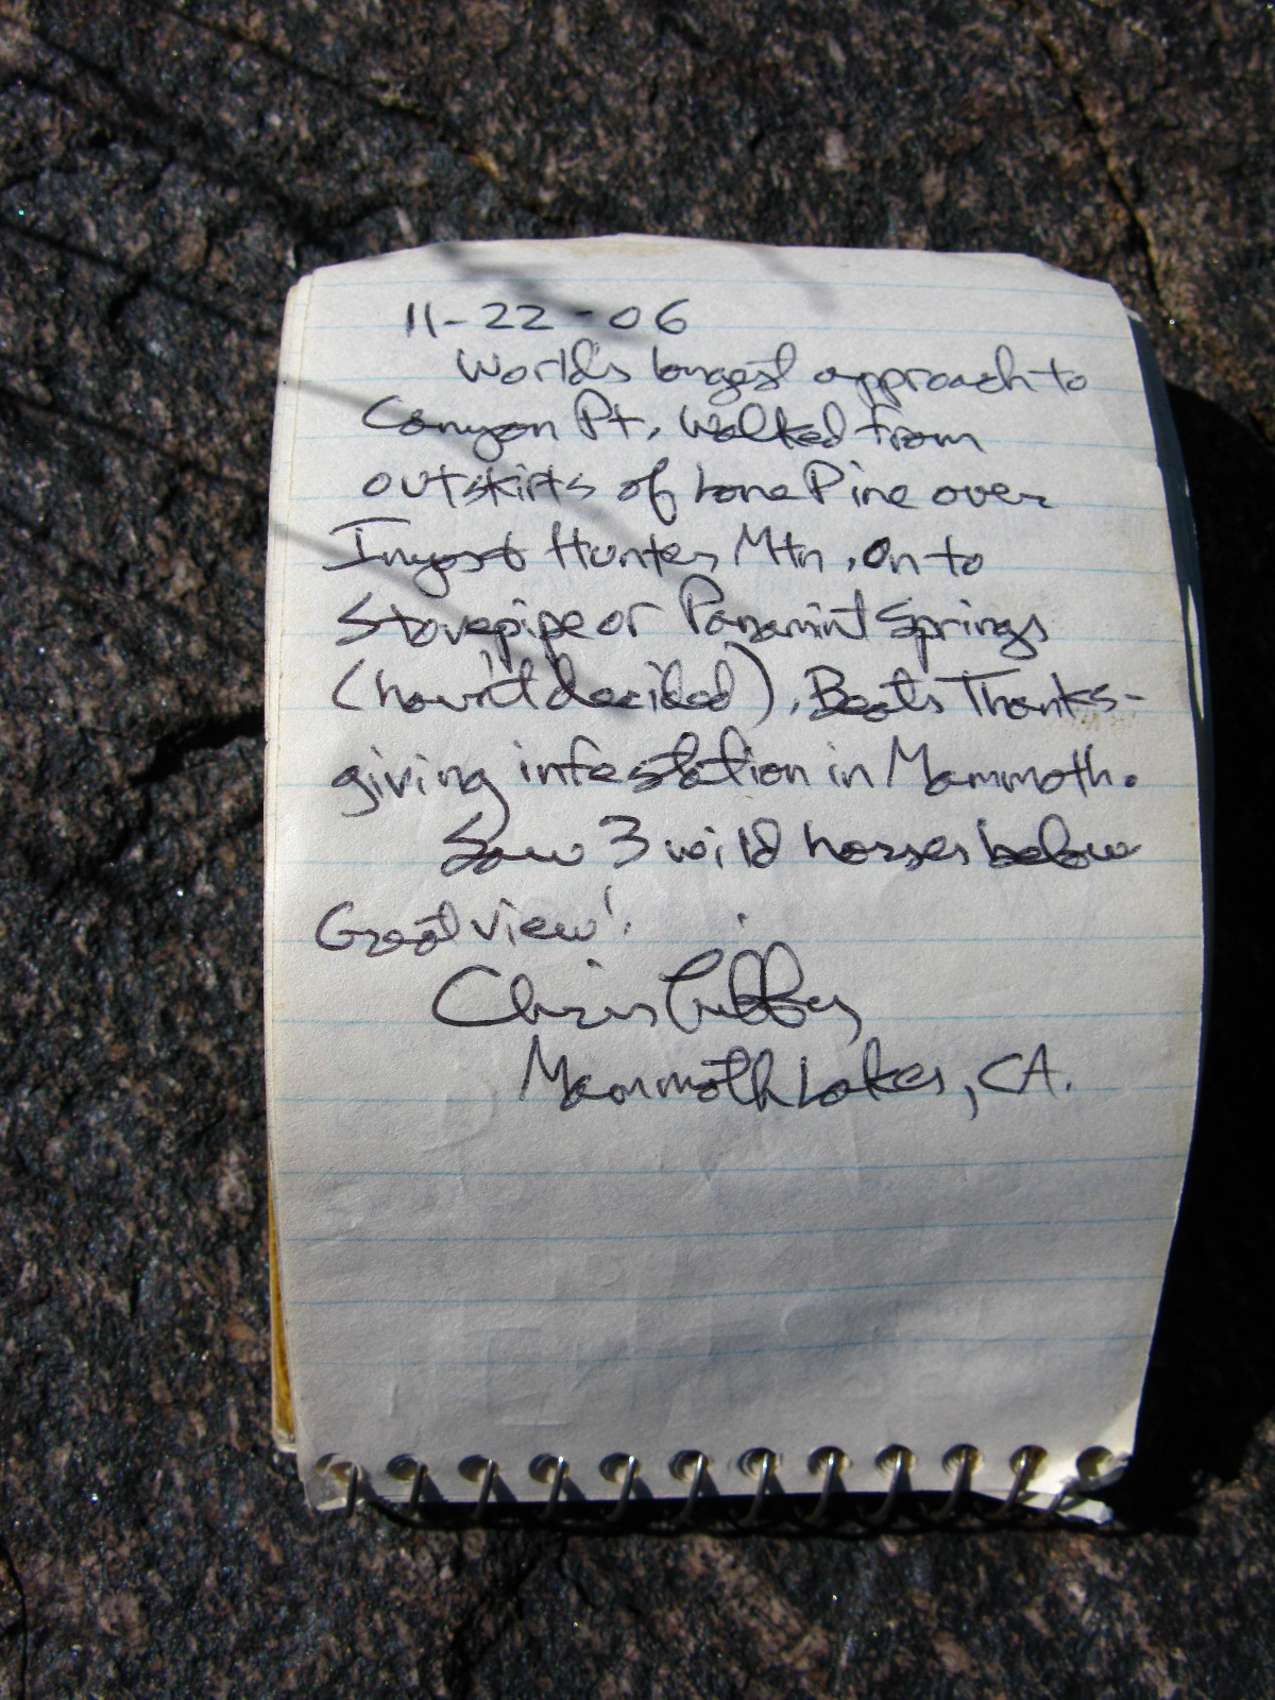 11-22-06
World's longest approach to
Canyon Pt. Walked from
outskirts of Lone Pine over
Inyos & Hunter Mtn, On to
Stovepipe or Panamint Springs
(haven't decided). Beats Thanks-
giving infestation in Mammoth.
Saw 3 wild horses below
Great view!
Chris Libby
Mammoth Lakes, CA.